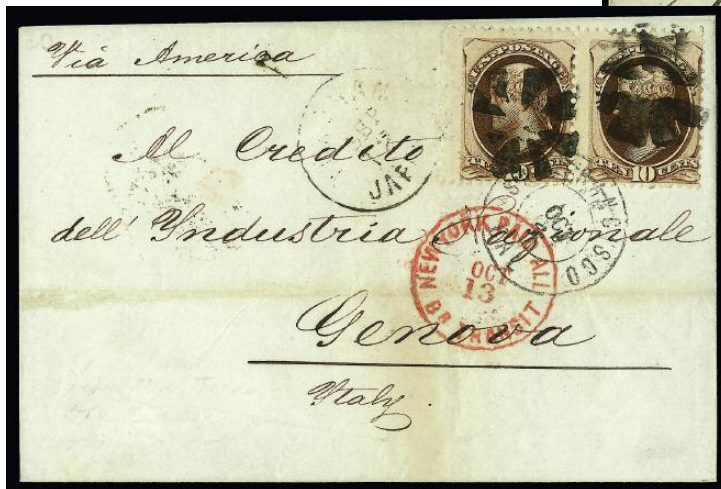 Via America
U.S. POSTAGE
U.S. POSTAGE
10 CENTS
JAP
Al Credito
dell' Industria Nazionale
SAN FRANCISCO
OCT
NEW YORK PAID ALL
OCT
13
BR TRANSIT
Genova
Italy.